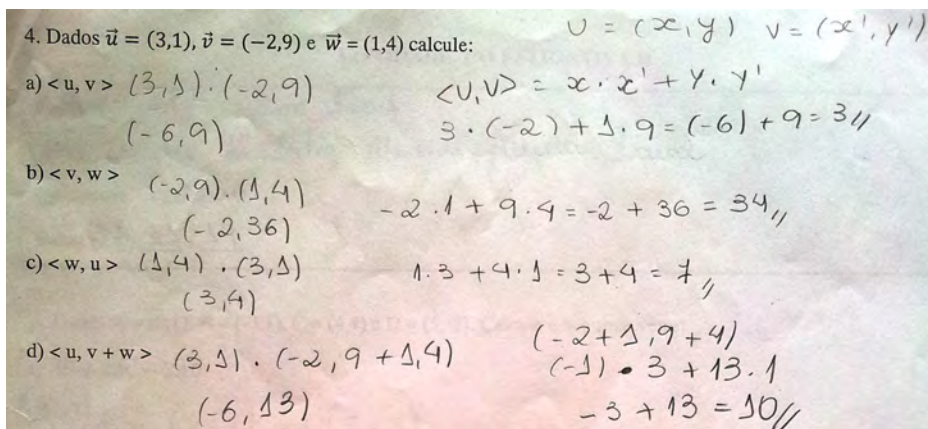 4. Dados u⃗ = (3,1), v⃗ = (−2,9) e w⃗ = (1,4) calcule:
U = (x,y) V = (x', y')
a) < u, v > (3,1).(-2,9)
(-6,9)
<U,V> = x.x' + y.y'
3.(-2) + 1.9 = (-6) + 9 = 3//
b) < v, w >
(-2,9).(1,4)
(-2,36)
-2.1 + 9.4 = -2 + 36 = 34//
c) < w, u > (1,4).(3,1)
(3,4)
1.3 + 4.1 = 3+4 = 7//
d) < u, v + w > (3,1).(-2,9 + 1,4)
(-6,13)
(-2+1,9+4)
(-1)•3 + 13.1
-3 + 13 = 10//